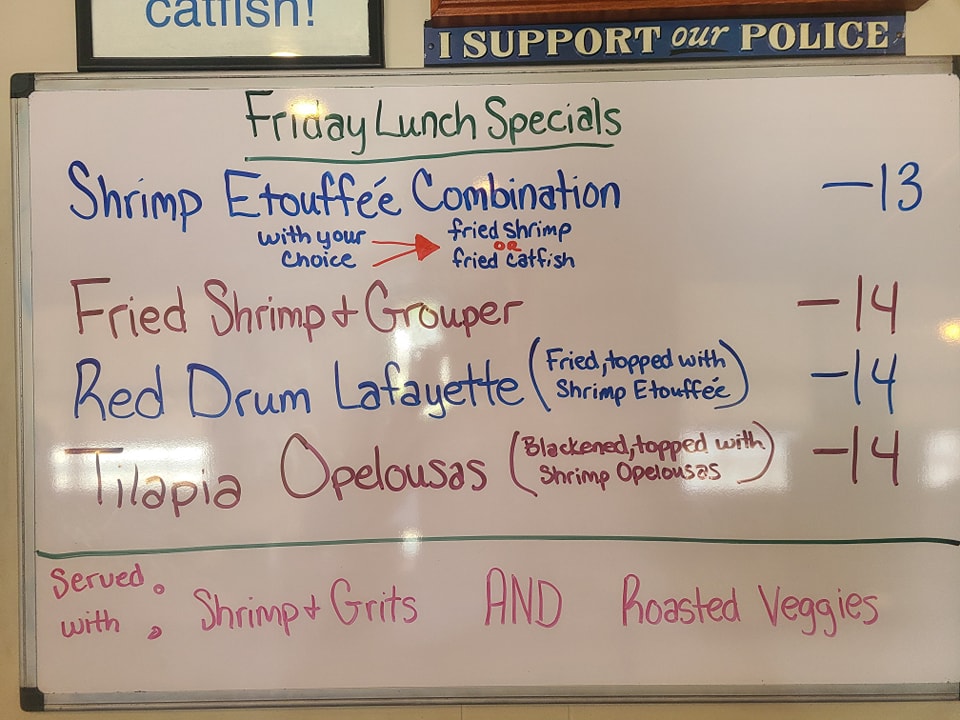 catfish!
I SUPPORT our POLICE
Friday Lunch Specials
Shrimp Etouffée Combination —13
with your choice fried shrimp
OR
fried catfish
Fried Shrimp + Grouper —14
Red Drum Lafayette (Fried, topped with Shrimp Etouffée) —14
Tilapia Opelousas (Blackened, topped with Shrimp Opelousas) —14
Served with: Shrimp + Grits AND Roasted Veggies